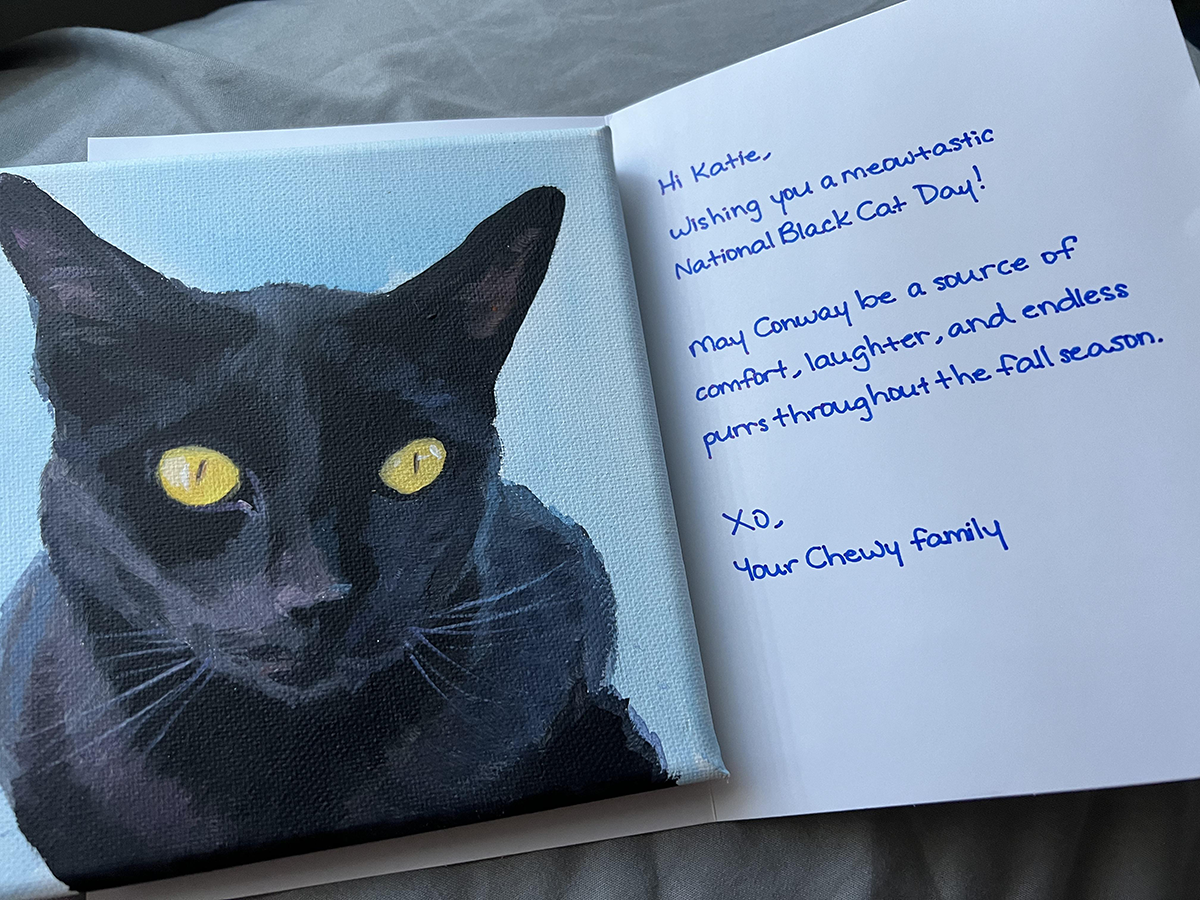 Hi Katie,
Wishing you a meowtastic
National Black Cat Day!
May Conway be a source of
comfort, laughter, and endless
purrs throughout the fall season.
XO,
Your Chewy family